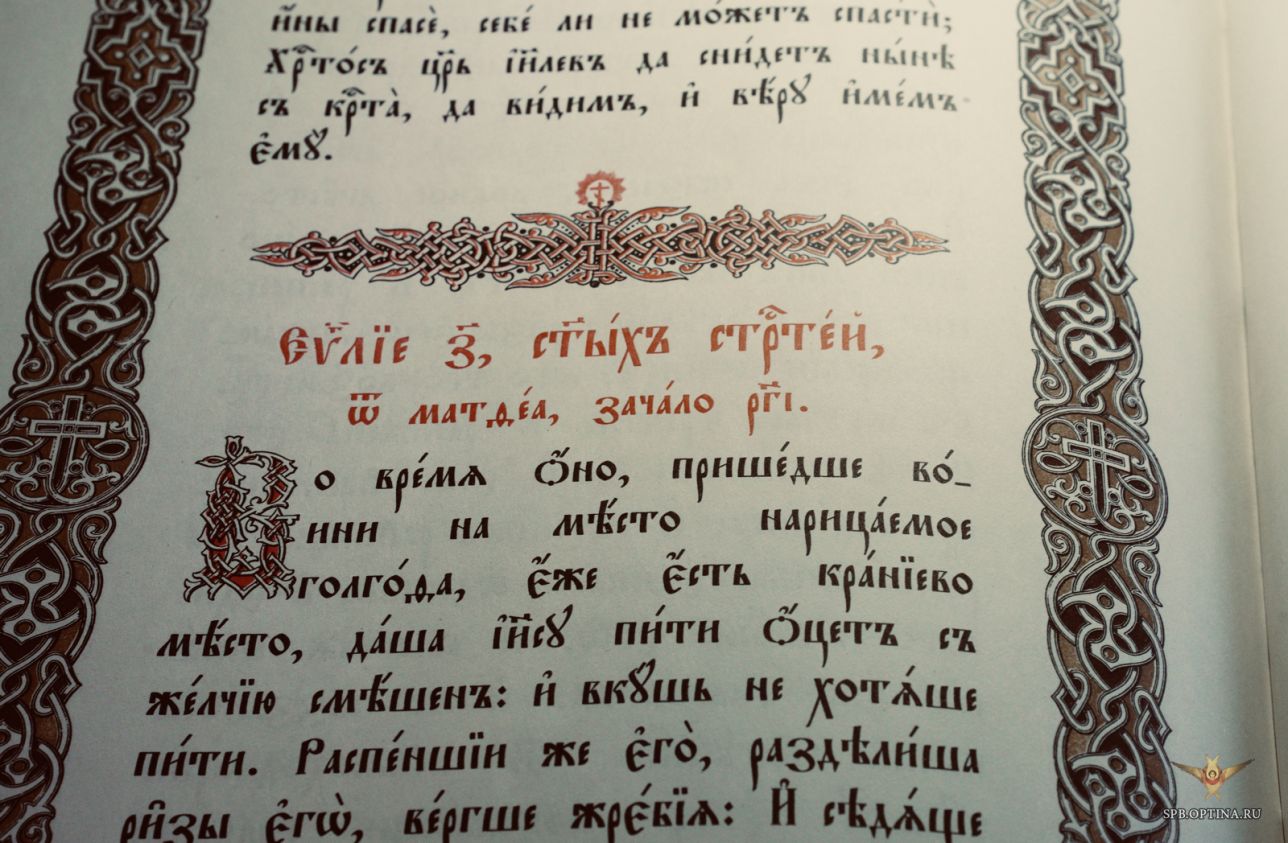 и҆́ны спасѐ, себе́ ли не мо́жетъ спастѝ;
Хрⷭ҇то́съ цр҃ь і҆и҃левъ да сни́детъ ны́нѣ
съ крⷭ҇та̀, да ви́димъ, и҆ вѣ́рꙋ и҆ме́мъ
є҆мꙋ̀.
Єѵⷢ҇лїе з҃, ст҃ы́хъ стрⷭ҇те́й,
ѿ матѳе́а, зача́ло рг҃і.
Во вре́мѧ ѻ҆́но, прише́дше во́_
ини на мѣ́сто нарица́емое
голго́ѳа, є҆́же є҆́сть кра́нїево
мѣ́сто, да́ша і҆и҃сꙋ пи́ти ѻ҆́цетъ съ
же́лчїю смѣ́шенъ: и҆ вкꙋ́шь не хотѧ́ше
пи́ти. Распе́ншїи же є҆го̀, раздѣли́ша
ри҄зы є҆гѡ̀, ве́ргше жре́бїѧ: И҆ сѣдѧ́ще
SPB.OPTINA.RU